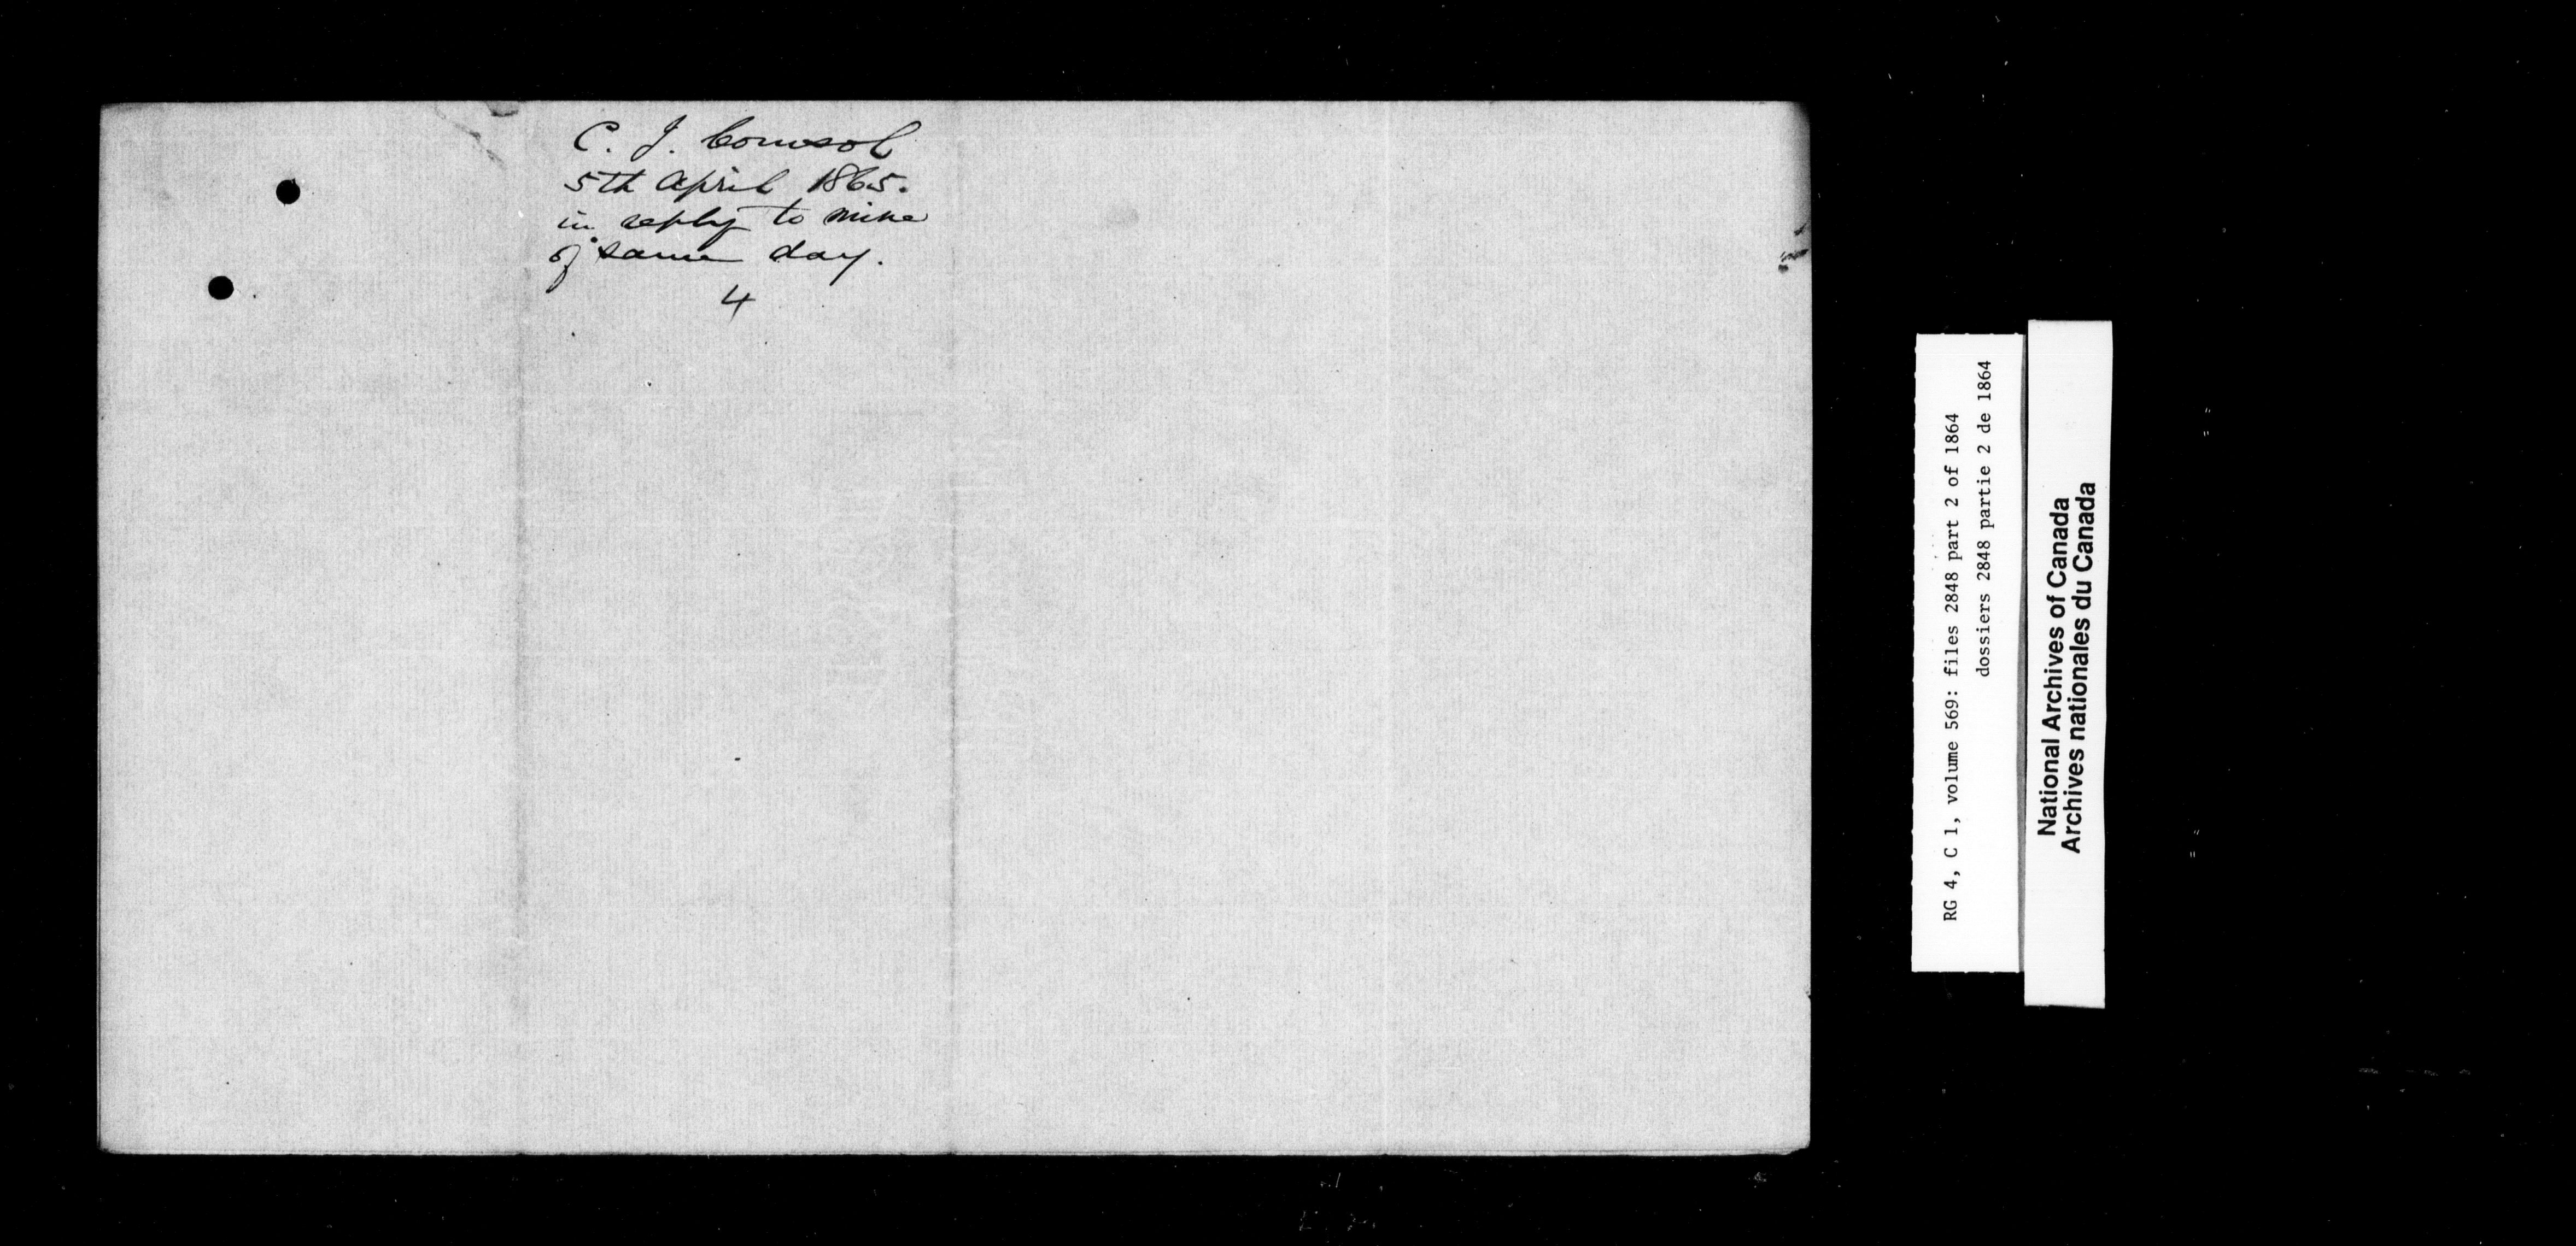 C. J. Coursol
5th April 1865.
in reply to mine
of same day.
4
RG 4, C 1, volume 569: files 2848 part 2 of 1864
dossiers 2848 partie 2 de 1864
National Archives of Canada
Archives nationales du Canada